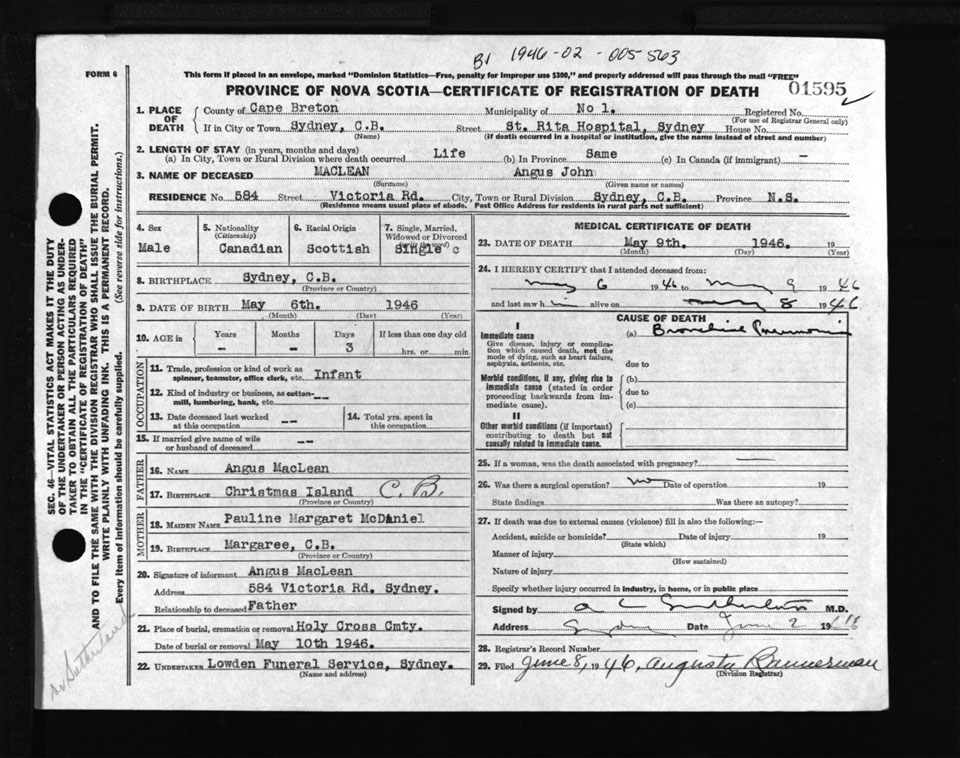 B1 1946-02-005563
FORM 6
This form if placed in an envelope, marked "Dominion Statistics—Free, penalty for improper use $300," and properly addressed will pass through the mail "FREE"
PROVINCE OF NOVA SCOTIA—CERTIFICATE OF REGISTRATION OF DEATH
01595
1. PLACE OF DEATH
County of Cape Breton Municipality of No 1. Registered No.
(For use of Registrar General only)
If in City or Town Sydney, C.B. Street St. Rita Hospital, Sydney House No.
(If death occurred in a hospital or institution, give the name instead of street and number)
2. LENGTH OF STAY (in years, months and days)
(a) In City, Town or Rural Division where death occurred Life (b) In Province Same (c) In Canada (if immigrant) —
3. NAME OF DECEASED MACLEAN Angus John
(Surname) (Given name or names)
RESIDENCE No. 584 Street Victoria Rd. City, Town or Rural Division Sydney, C.B. Province N.S.
(Residence means usual place of abode. Post Office Address for residents in rural parts not sufficient)
4. Sex
Male
5. Nationality
(Citizenship)
Canadian
6. Racial Origin
Scottish
7. Single, Married, Widowed or Divorced
Single
8. BIRTHPLACE Sydney, C.B.
(Province or Country)
9. DATE OF BIRTH May 6th. 1946
(Month) (Day) (Year)
10. AGE in Years Months Days If less than one day old
- - 3 hrs. or min.
OCCUPATION
11. Trade, profession or kind of work as spinner, teamster, office clerk, etc. Infant
12. Kind of industry or business, as cotton-mill, lumbering, bank, etc. --
13. Date deceased last worked at this occupation --
14. Total yrs. spent in this occupation
15. If married give name of wife or husband of deceased --
FATHER
16. NAME Angus MacLean
17. BIRTHPLACE Christmas Island C.B.
(Province or Country)
MOTHER
18. MAIDEN NAME Pauline Margaret McDaniel
19. BIRTHPLACE Margaree, C.B.
(Province or Country)
20. Signature of informant Angus MacLean
Address 584 Victoria Rd. Sydney.
Relationship to deceased Father
21. Place of burial, cremation or removal Holy Cross Cmty.
Date of burial or removal May 10th 1946.
22. UNDERTAKER Lowden Funeral Service, Sydney.
(Name and address)
MEDICAL CERTIFICATE OF DEATH
23. DATE OF DEATH May 9th. 1946. 19
(Month) (Day) (Year)
24. I HEREBY CERTIFY that I attended deceased from:
May 6 1946 to May 9 1946
and last saw him alive on May 8 1946
CAUSE OF DEATH
I
Immediate cause (a) Bronchial Pneumonia
Give disease, injury or complication which caused death, not the mode of dying, such as heart failure, asphyxia, asthenia, etc.
due to
Morbid conditions, if any, giving rise to immediate cause (stated in order proceeding backwards from immediate cause).
(b)
due to
(c)
II
Other morbid conditions (if important) contributing to death but not causally related to immediate cause.
25. If a woman, was the death associated with pregnancy? —
26. Was there a surgical operation? no Date of operation 19
State findings Was there an autopsy?
27. If death was due to external causes (violence) fill in also the following:—
Accident, suicide or homicide? Date of injury 19
(State which)
Manner of injury
(How sustained)
Nature of injury
Specify whether injury occurred in industry, in home, or in public place
Signed by A C Sutherland M.D.
Address Sydney Date June 2 19
28. Registrar's Record Number
29. Filed June 8, 1946, Augusta Bannerman
(Division Registrar)
SEC. 46—VITAL STATISTICS ACT MAKES IT THE DUTY
OF THE UNDERTAKER OR PERSON ACTING AS UNDER-
TAKER TO OBTAIN ALL THE PARTICULARS REQUIRED
IN THE "CERTIFICATE OF REGISTRATION OF DEATH"
AND TO FILE THE SAME WITH THE DIVISION REGISTRAR WHO SHALL ISSUE THE BURIAL PERMIT.
WRITE PLAINLY WITH UNFADING INK. THIS IS A PERMANENT RECORD.
Every item of information should be carefully supplied. (See reverse side for instructions.)
Sutherland